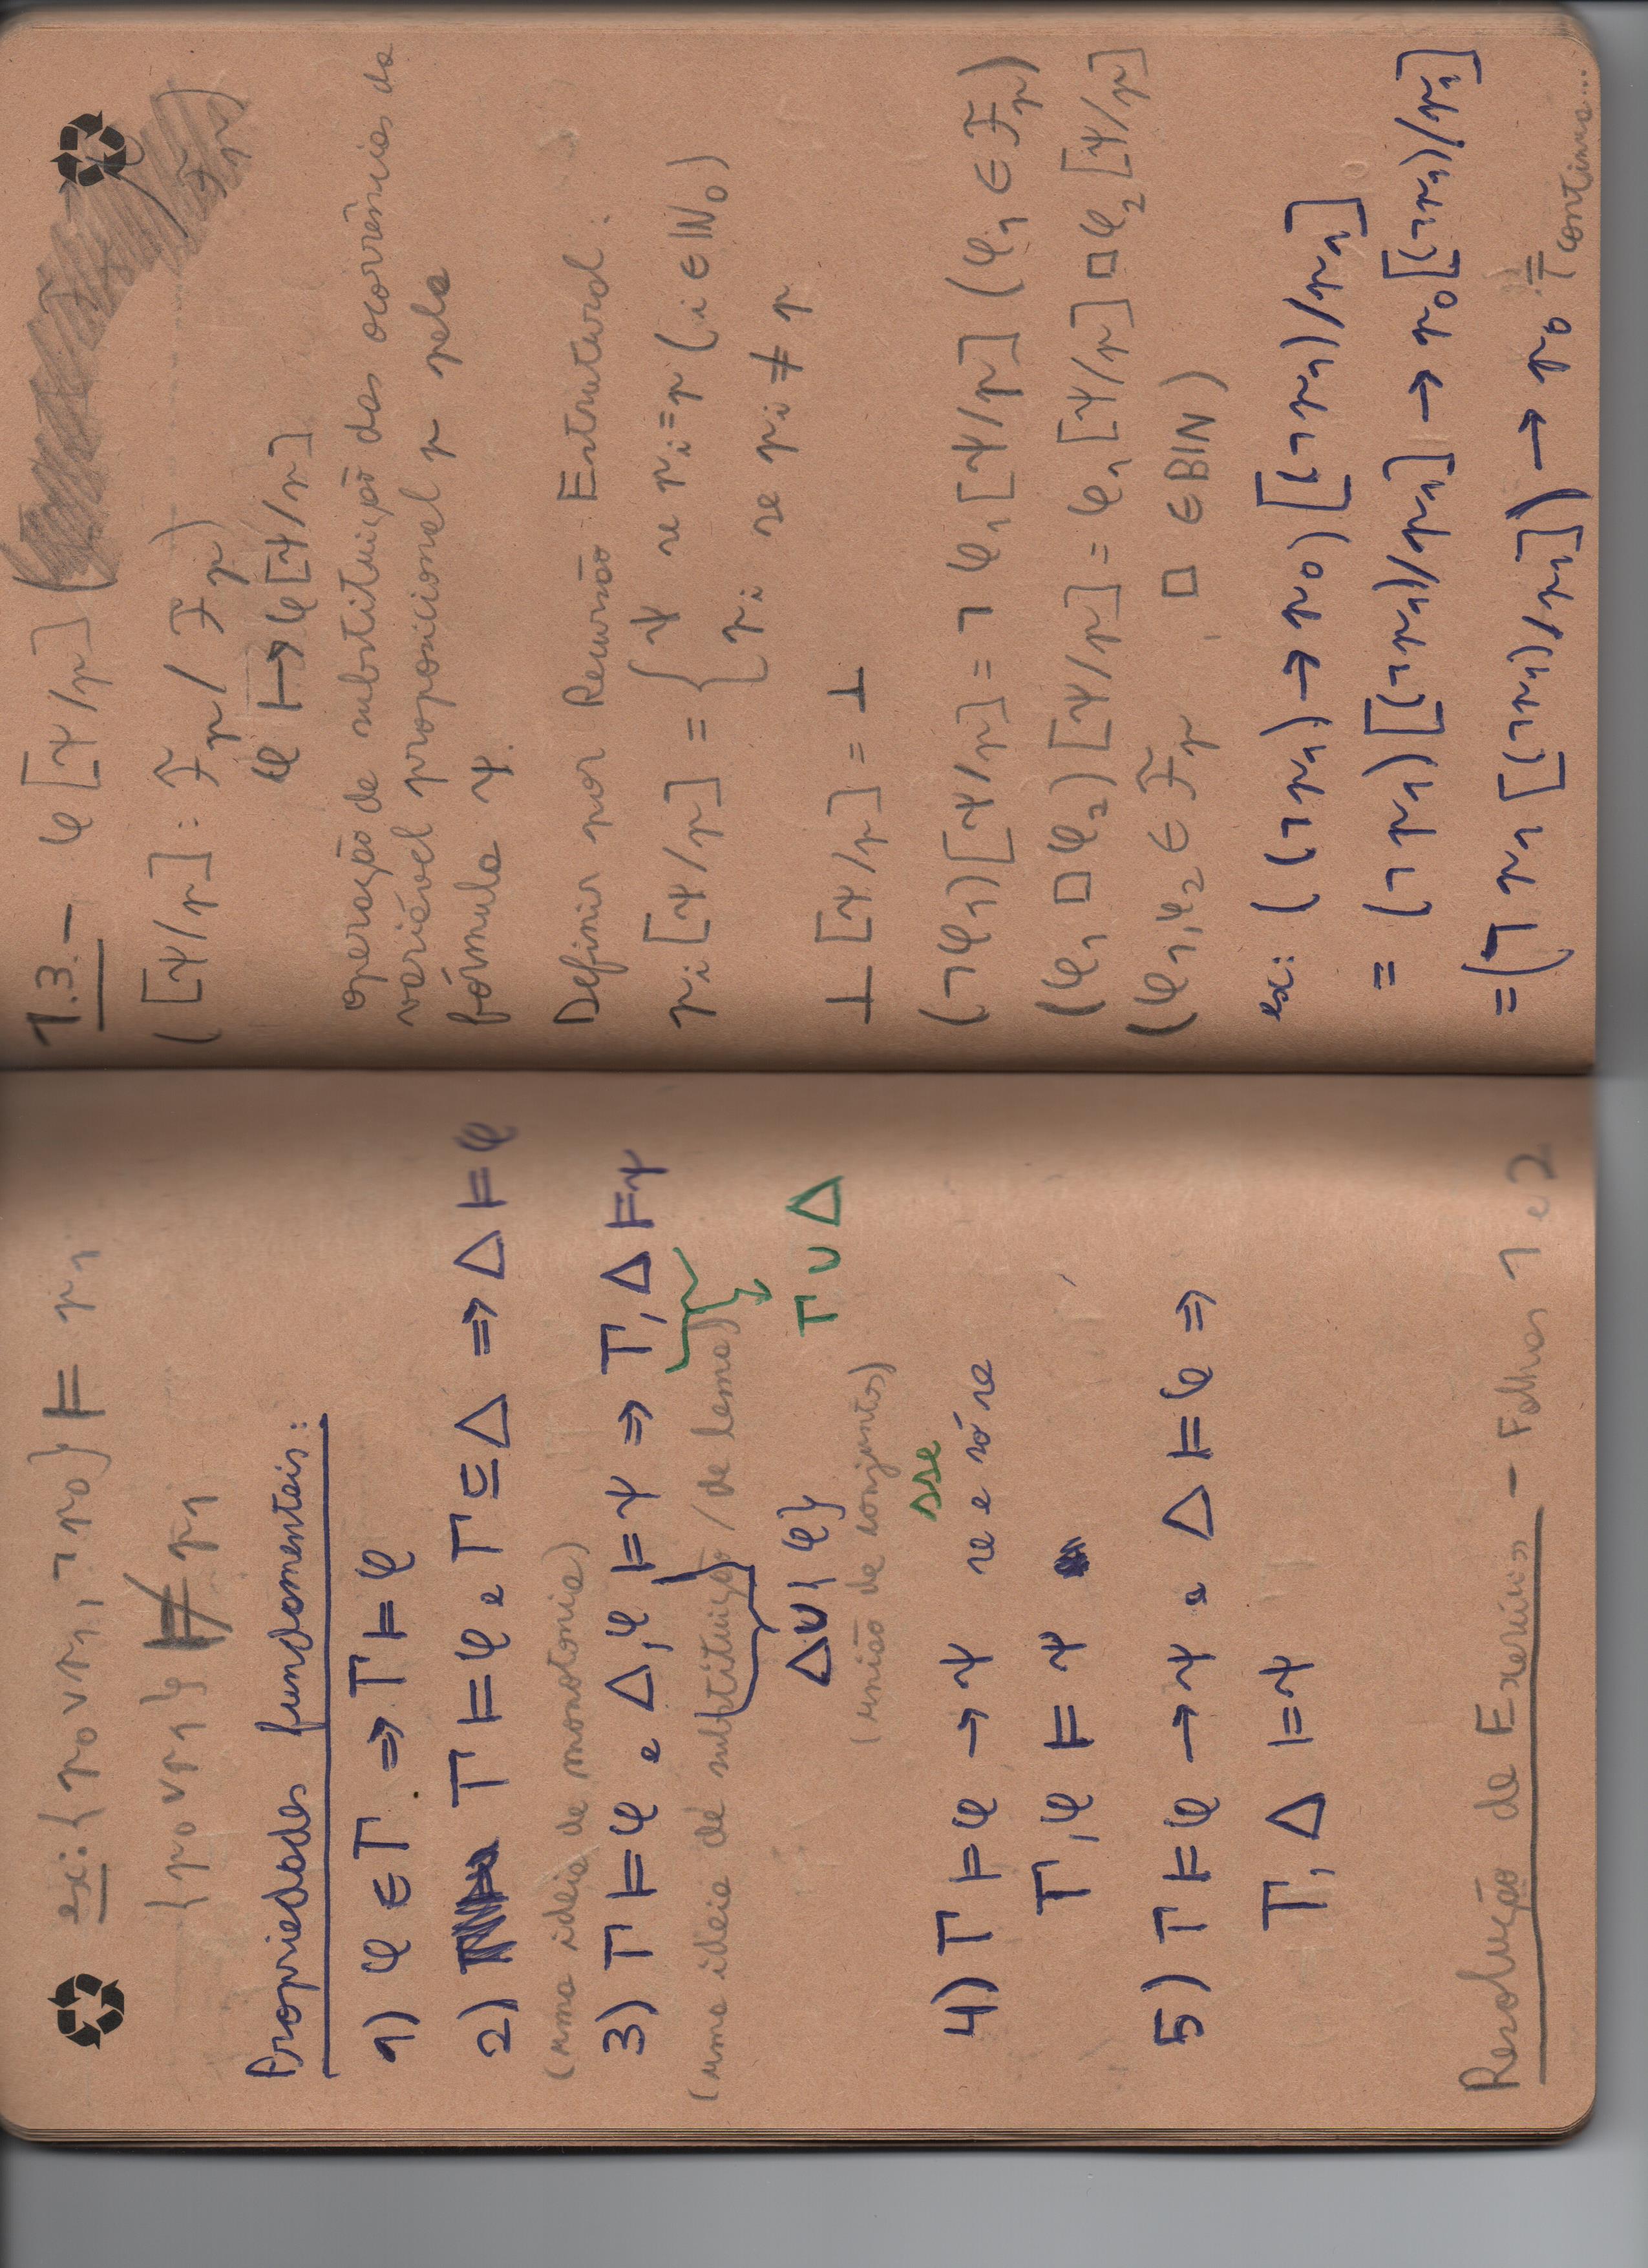 ex: { p₀ ∨ p₁, ¬ p₀ } ⊨ p₁
{ p₀ ∨ p₁ } ⊭ p₁
Propriedades fundamentais:
1) φ ∈ Γ ⇒ Γ ⊨ φ
2) Γ ⊨ φ e Γ ⊆ Δ ⇒ Δ ⊨ φ
(uma ideia de monotonia)
3) Γ ⊨ φ e Δ, φ ⊨ ψ ⇒ Γ, Δ ⊨ ψ
(uma ideia de substituição / de lema)
Δ ∪ { φ } Γ ∪ Δ
(união de conjuntos)
sse
4) Γ ⊨ φ → ψ se e só se
Γ, φ ⊨ ψ
5) Γ ⊨ φ → ψ e Δ ⊨ φ ⇒
Γ, Δ ⊨ ψ
Resolução de Exercícios - Folhas 1 e 2
1.3. - φ [ψ/p] (
([ψ/p] : Fp / Fp)
φ ↦ φ[ψ/p]
operação de substituição das ocorrências da
variável proposicional p pela
fórmula ψ.
Definir por Recursão Estrutural:
pᵢ [ψ/p] = { ψ se pᵢ = p (i ∈ ℕ₀)
pᵢ se pᵢ ≠ p
⊥ [ψ/p] = ⊥
(¬φ₁)[ψ/p] = ¬ φ₁[ψ/p] (φ₁ ∈ Fp)
(φ₁ □ φ₂) [ψ/p] = φ₁ [ψ/p] □ φ₂ [ψ/p]
(φ₁, φ₂ ∈ Fp , □ ∈ BIN)
ex: ((¬p₁) → p₀) [(¬p₁)/p₁]
= (¬p₁) [(¬p₁)/p₁] → p₀[(¬p₁)/p₁]
= (¬ p₁ [(¬p₁)/p₁]) → p₀ =
continua...